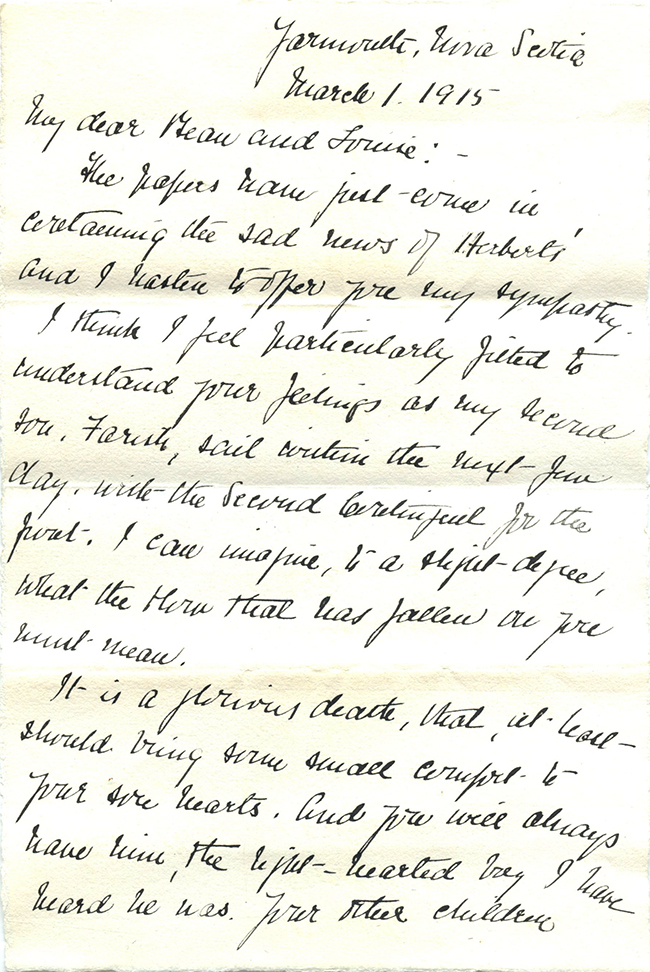 Yarmouth, Nova Scotia
March 1. 1915
My dear Bean and Louise: -
The papers have just come in,
containing the sad news of Herbert's
and I hasten to offer you my sympathy.
I think I feel particularly fitted to
understand your feelings as my second
son, Farish, sails within the next few
days with the Second Contingent for the
front. I can imagine, to a slight degree,
what the blow that has fallen on you
must mean.
It is a glorious death, that, at least
should bring some small comfort to
your sore hearts. And you will always
have him, the light-hearted boy I have
heard he was. Your other children